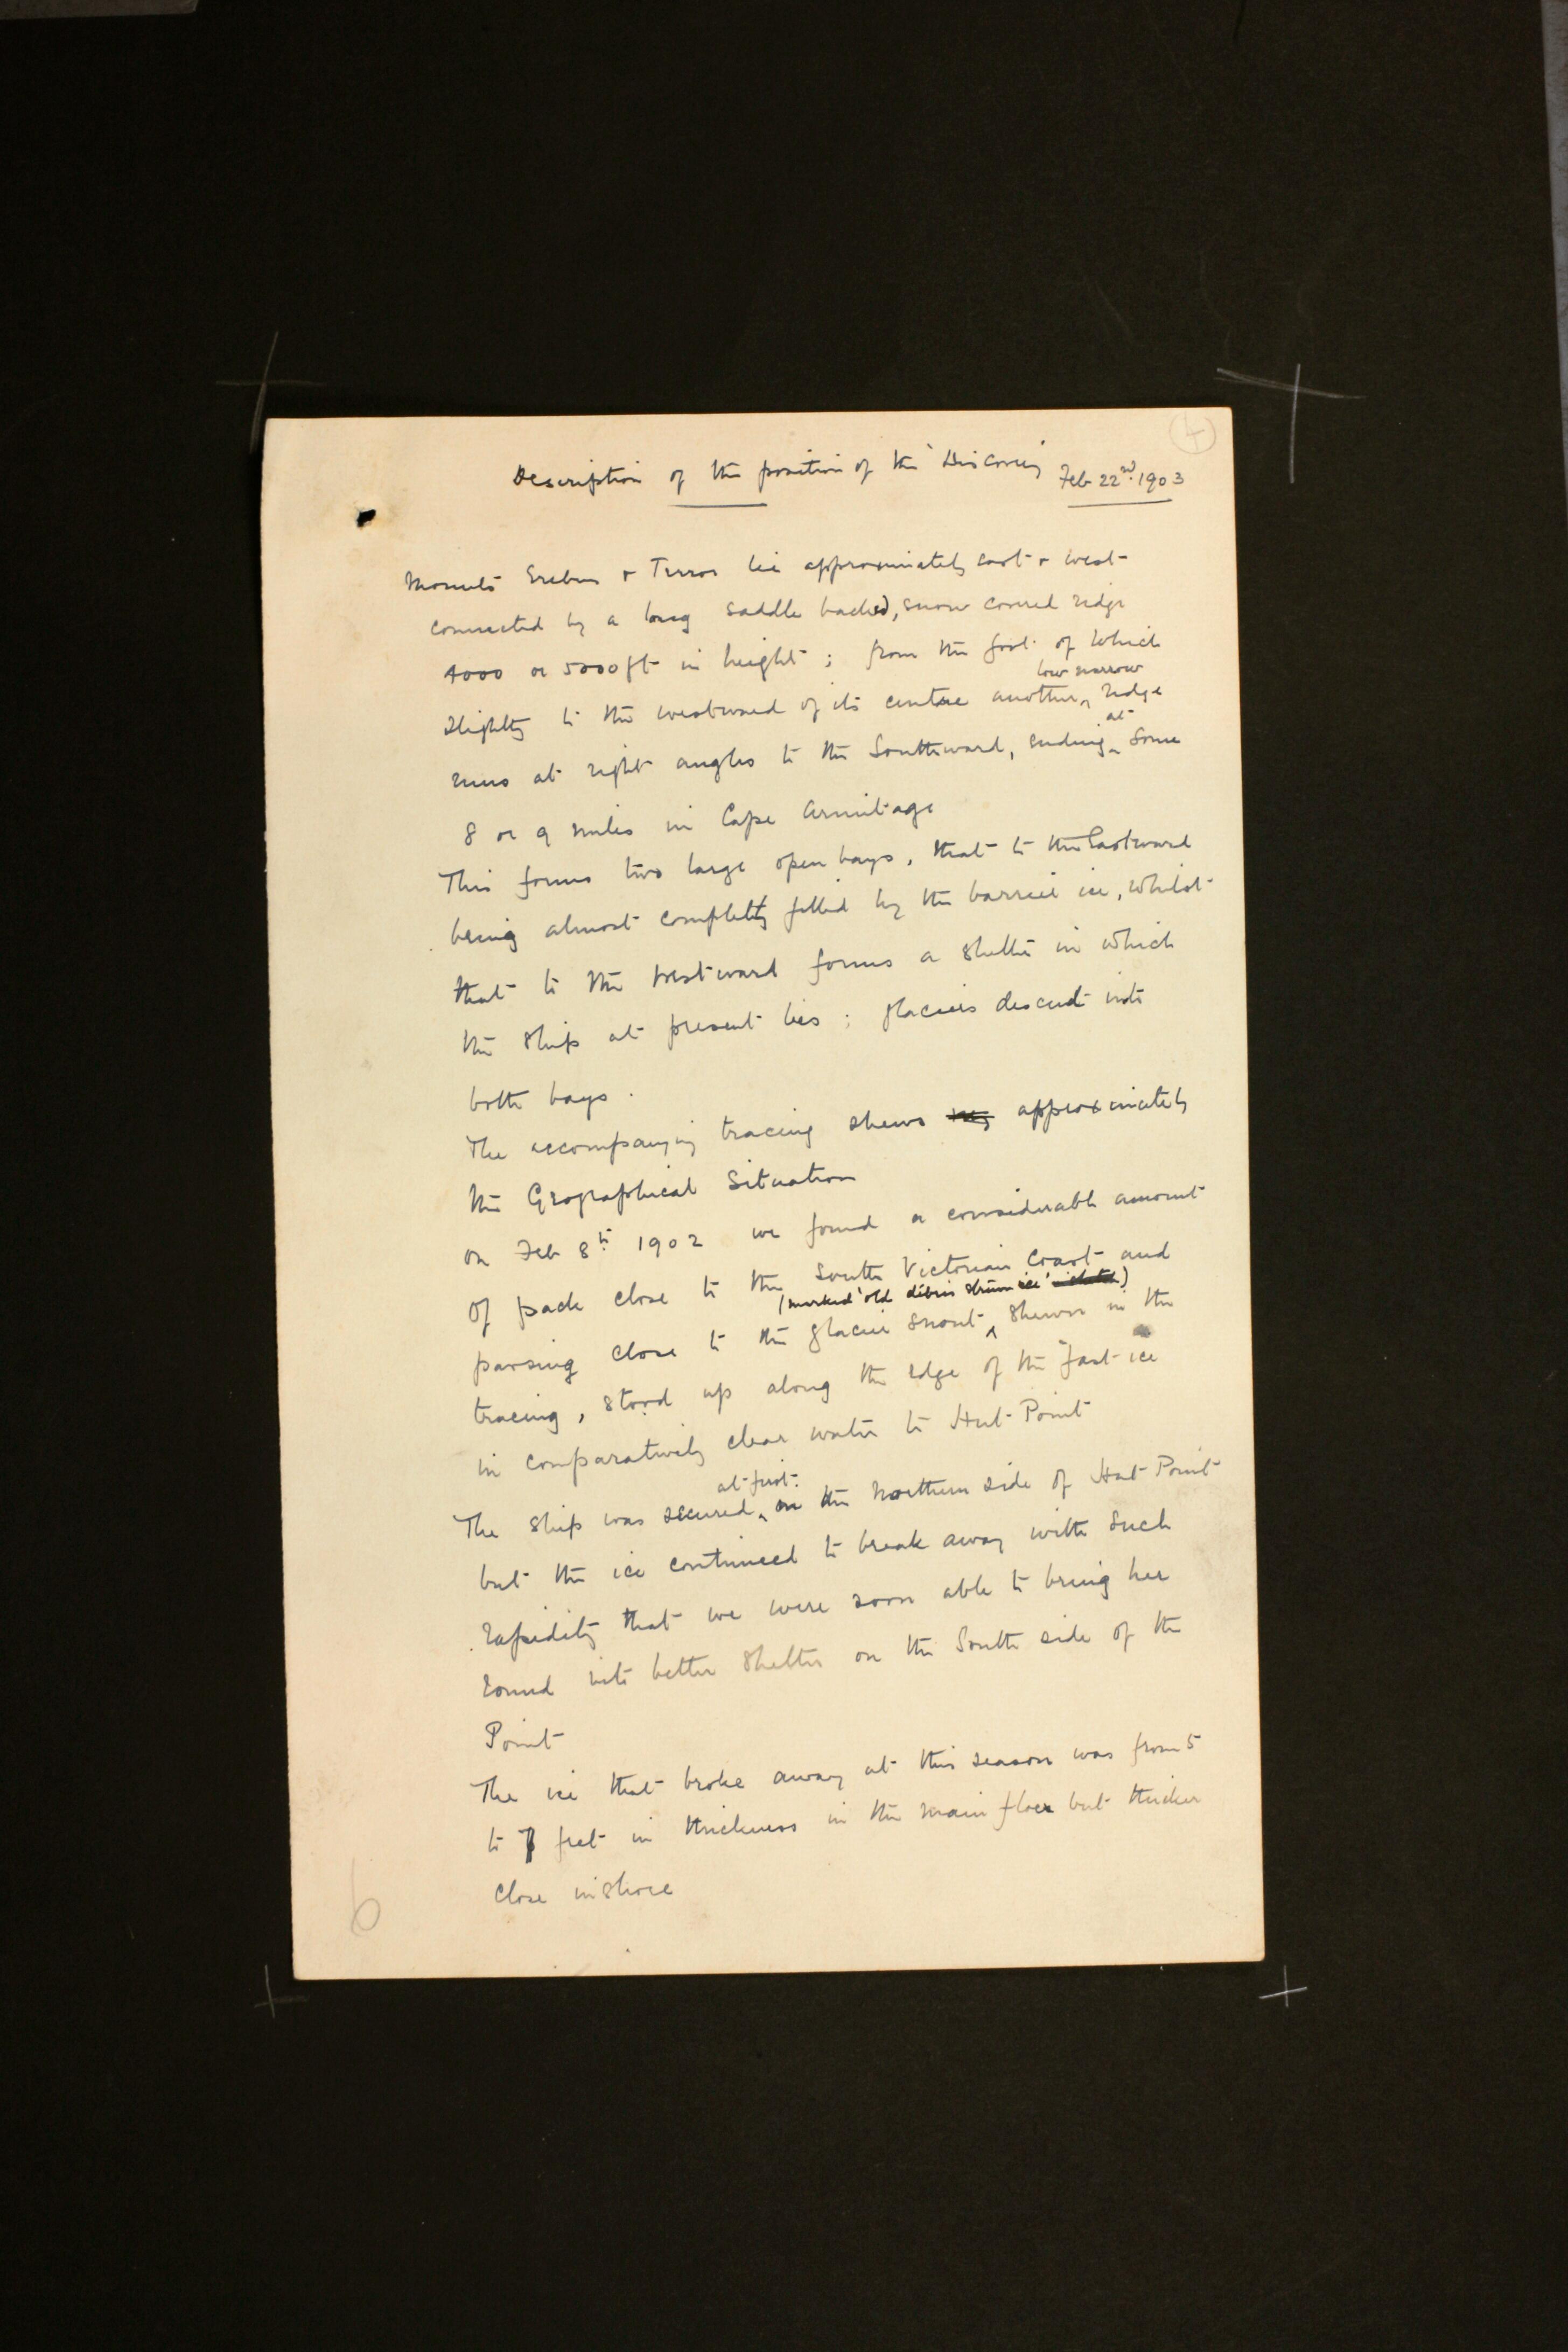 4
Description of the position of the 'Discovery' Feb 22nd. 1903
Mounts Erebus & Terror lie approximately east & west
connected by a long saddle backed, snow covered ridge
4000 or 5000 ft in height; from the foot of which
low narrow
slightly to the westward of its centre another ^ ridge
at
runs at right angles to the Southward, ending ^ some
8 or 9 miles in Cape Armitage
This forms two large open bays, that to the Eastward
being almost completely filled by the barrier ice, whilst
that to the westward forms a shelter in which
the ship at present lies; glaciers descend into
both bays.
The accompanying tracing shews approximately
the Geographical Situation
on Feb 8th 1902 we found a considerable amount
of pack close to the South Victorian Coast and
(marked 'old débris strewn ice')
passing close to the glacier snout ^ shewn in the
tracing, stood up along the edge of the fast ice
in comparatively clear water to Hut Point
at first.
The ship was secured ^ on the Northern side of Hut Point
but the ice continued to break away with such
rapidity that we were soon able to bring her
round into better shelter on the South side of the
Point
The ice that broke away at this season was from 5
to feet in thickness in the main floes but thicker
close inshore
6